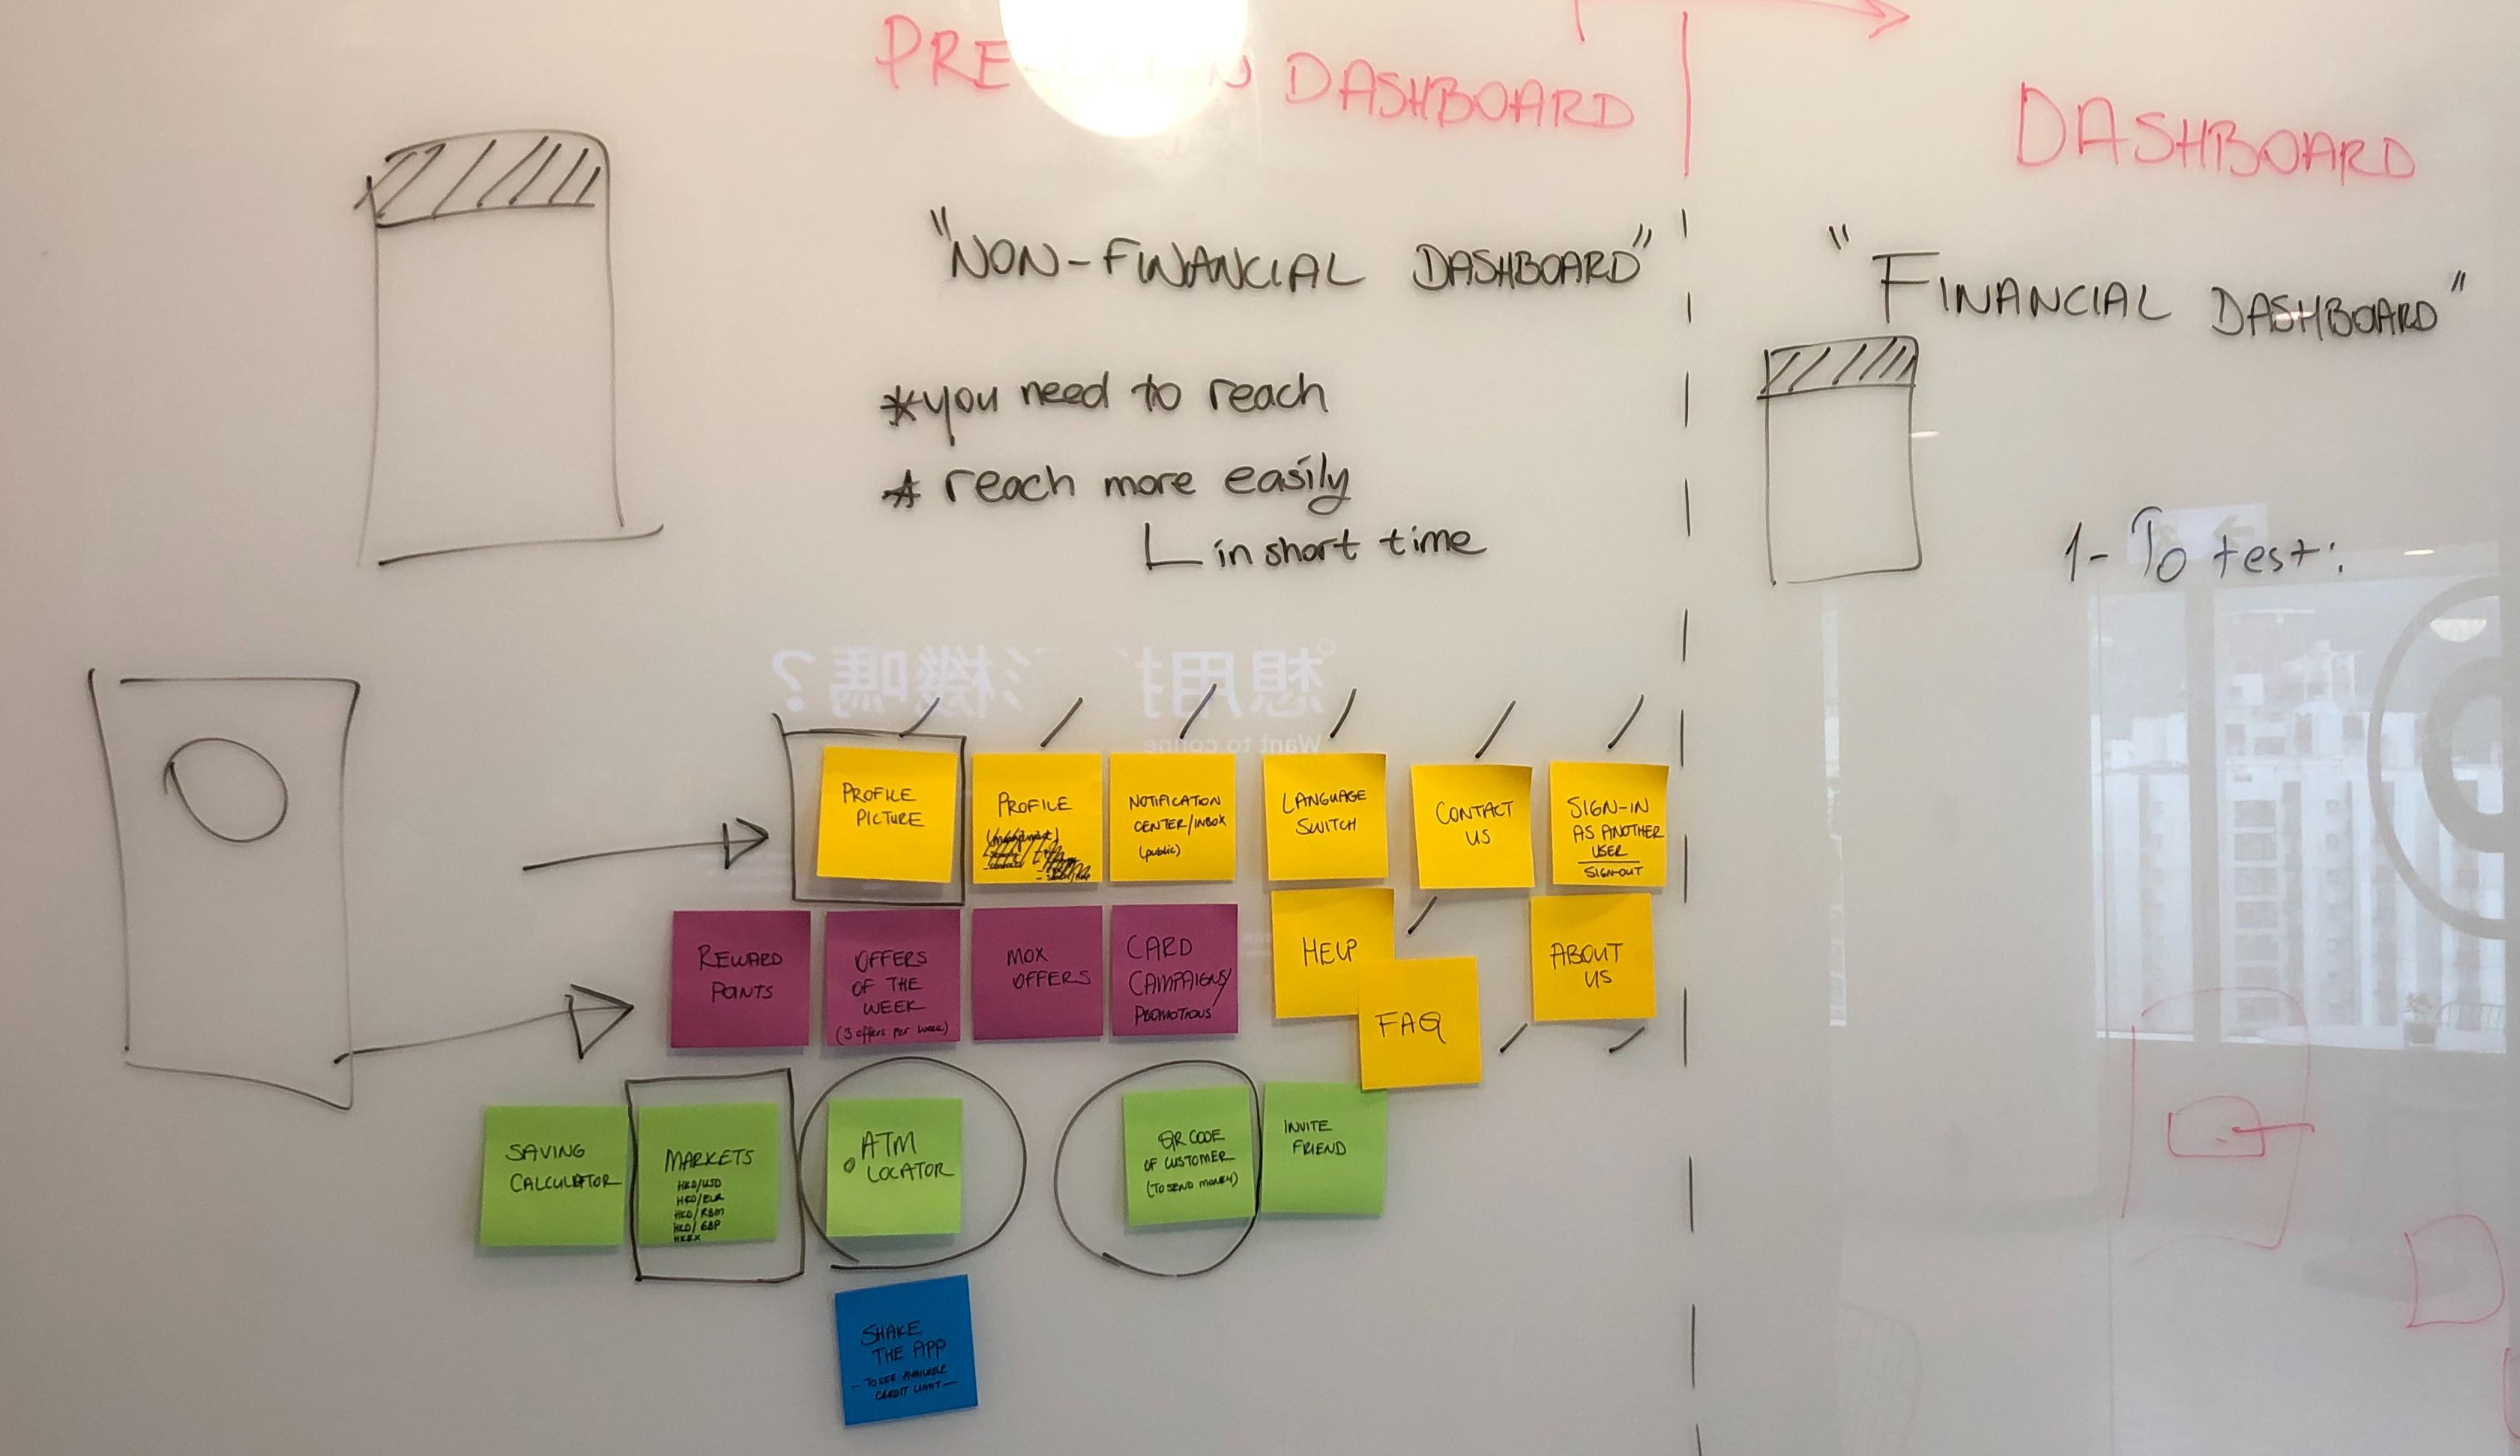 PRE- DASHBOARD
DASHBOARD
"NON-FINANCIAL DASHBOARD"
"FINANCIAL DASHBOARD"
*you need to reach
* reach more easily
in short time
1- To test:
PROFILE
PICTURE
PROFILE
NOTIFICATION
CENTER/INBOX
(public)
LANGUAGE
SWITCH
CONTACT
US
SIGN-IN
AS ANOTHER
USER
SIGN-OUT
REWARD
POINTS
OFFERS
OF THE
WEEK
(3 offers per week)
MOX
OFFERS
CARD
CAMPAIGNS/
PROMOTIONS
HELP
FAQ
ABOUT
US
SAVING
CALCULATOR
MARKETS
HKD/USD
HKD/EUR
HKD/RBM
HKD/GBP
HKEX
ATM
LOCATOR
QR CODE
OF CUSTOMER
(TO SEND MONEY)
INVITE
FRIEND
SHAKE
THE APP
- TO SEE AVAILABLE
CREDIT LIMIT -
想用 機嗎？
Want to